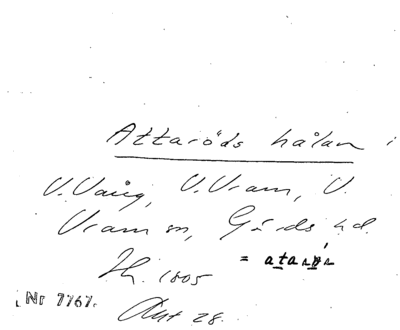 Attaröds hålan i
V. Vång, V. Vram, V.
Vram sn, Gärds hd.
Th. 1805
= atarön
Nr 7767.
Akt 28.